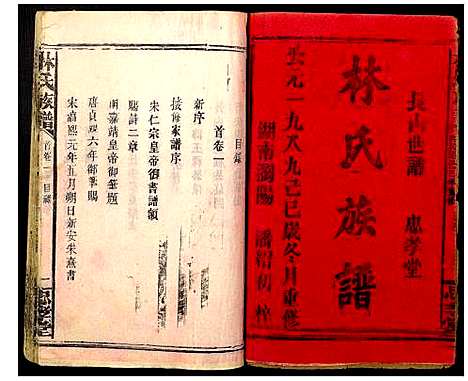 長山世譜　忠孝堂
林氏族譜
公元一九八九己巳歲冬月重修
湖南瀏陽
目錄
首卷一
新序
接海家譜序
宋仁宗皇帝御書譜額
賜詩二章
明嘉靖皇帝御筆題
唐貞觀六年御筆賜
宋淳熙元年五月朔日新安朱熹書
林氏族譜
首卷一
目錄
一
忠孝堂